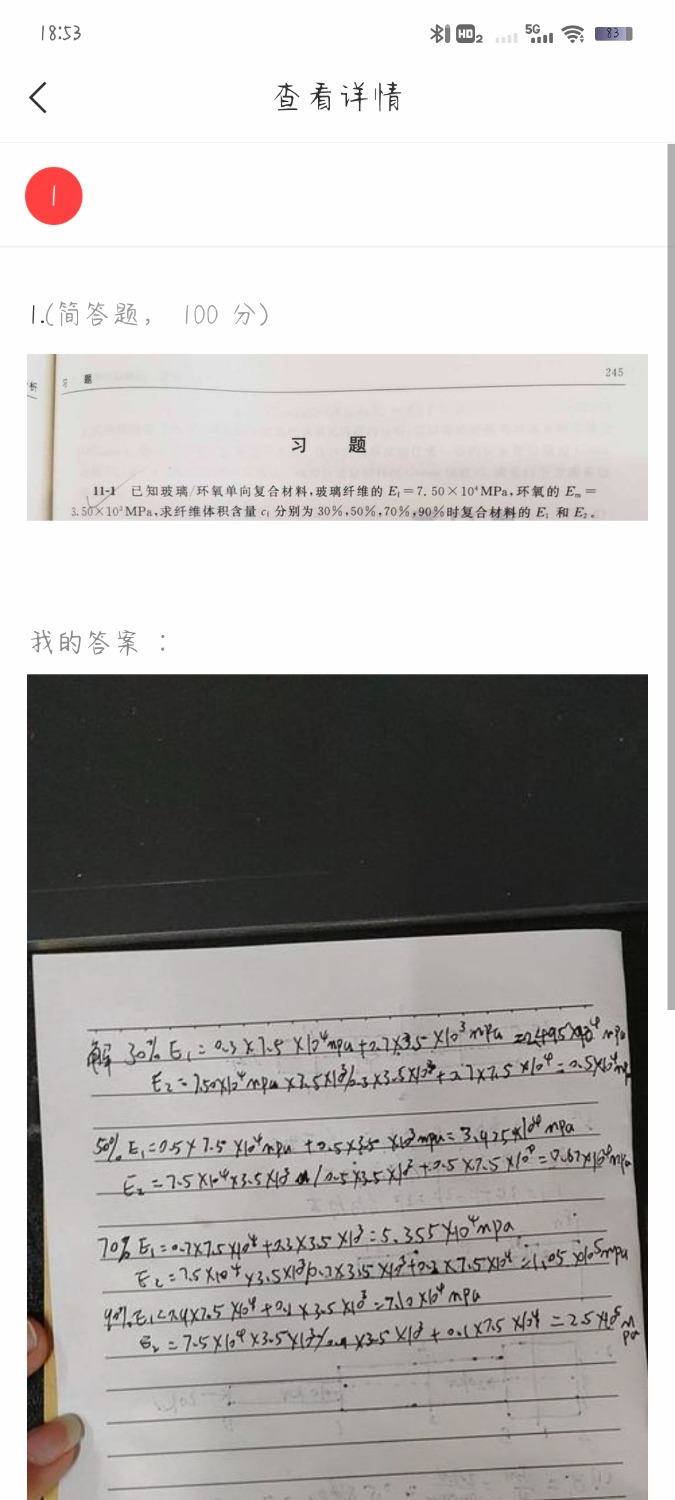 18:53
HD2 5G 83
查看详情
1
1.(简答题， 100 分)
习 题 245
析
习 题
11-1 已知玻璃/环氧单向复合材料,玻璃纤维的 Ef=7.50×10⁴MPa,环氧的 Em=
3.50×10³MPa,求纤维体积含量 cf 分别为 30%,50%,70%,90%时复合材料的 E₁ 和 E₂。
我的答案 ：
解 30% E₁=0.3×7.5×10⁴mpa+0.7×3.5×10³mpa=2.495×10⁴mpa
E₂=7.50×10⁴mpa×3.5×10³/0.3×3.5×10³+0.7×7.5×10⁴=0.5×10⁴mp
50% E₁=0.5×7.5×10⁴mpa+0.5×3.5×10³mpa=3.925×10⁴mpa
E₂=7.5×10⁴×3.5×10³/0.5×3.5×10³+0.5×7.5×10⁴=0.67×10⁴mpa
70% E₁=0.7×7.5×10⁴+0.3×3.5×10³=5.355×10⁴mpa
E₂=7.5×10⁴×3.5×10³/0.7×3.5×10³+0.3×7.5×10⁴=1.05×10⁵mpa
90% E₁=0.9×7.5×10⁴+0.1×3.5×10³=7.10×10⁴mpa
E₂=7.5×10⁴×3.5×10³/0.9×3.5×10³+0.1×7.5×10⁴=2.5×10⁵Mpa